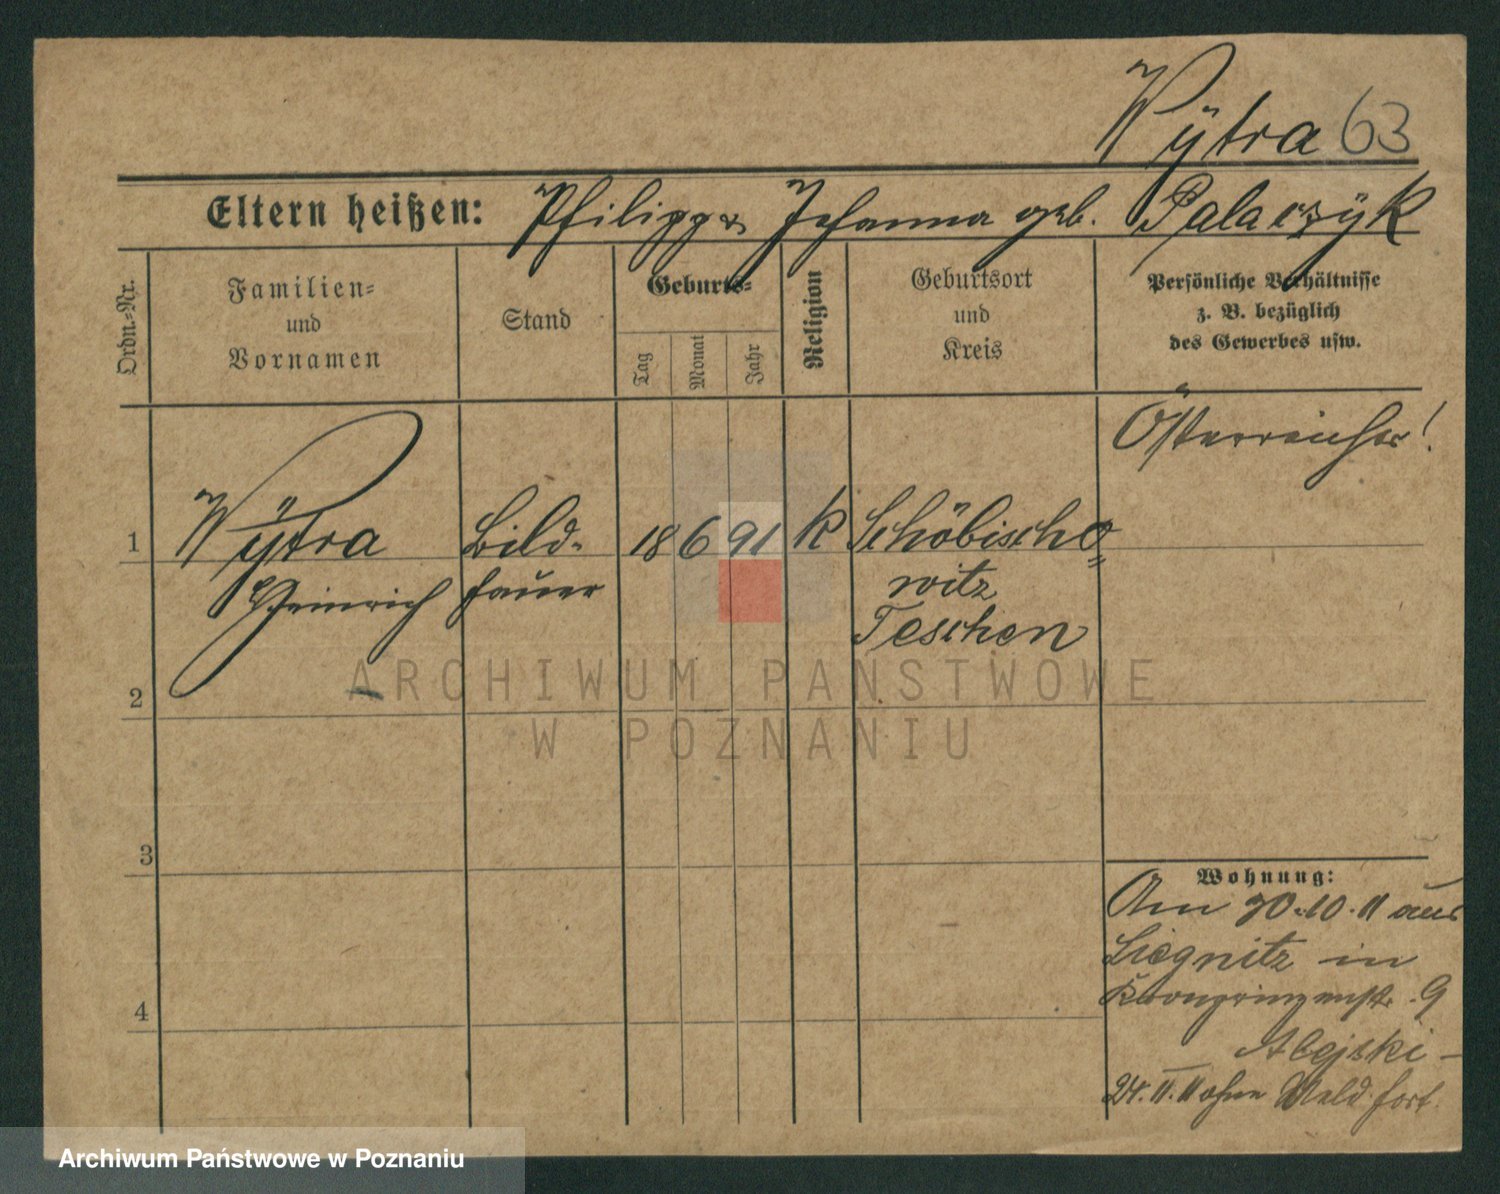 Wÿtra 63
Eltern heißen: Philipp u. Johanna geb. Palaczÿk
Ordn.-Nr.
Familien-
und
Vornamen
Stand
Geburts-
Tag
Monat
Jahr
Religion
Geburtsort
und
Kreis
Persönliche Verhältnisse
z. B. bezüglich
des Gewerbes usw.
Österreicher!
1 Wÿtra Bild- 18 6 91 k Schöbischo=
Heinrich hauer witz
Teschen
2
3
4
Wohnung:
Am 30.10.11 aus
Liegnitz in
Kronprinzenstr. 9
Alejski -
24.11.11 ohne Meld. fort.
ARCHIWUM PAŃSTWOWE
W POZNANIU
Archiwum Państwowe w Poznaniu